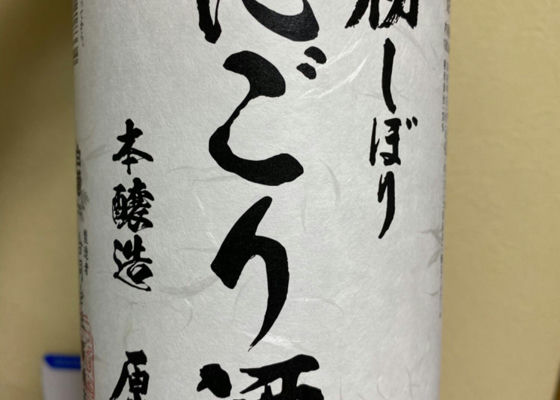 しぼり
にごり酒
本醸造 原